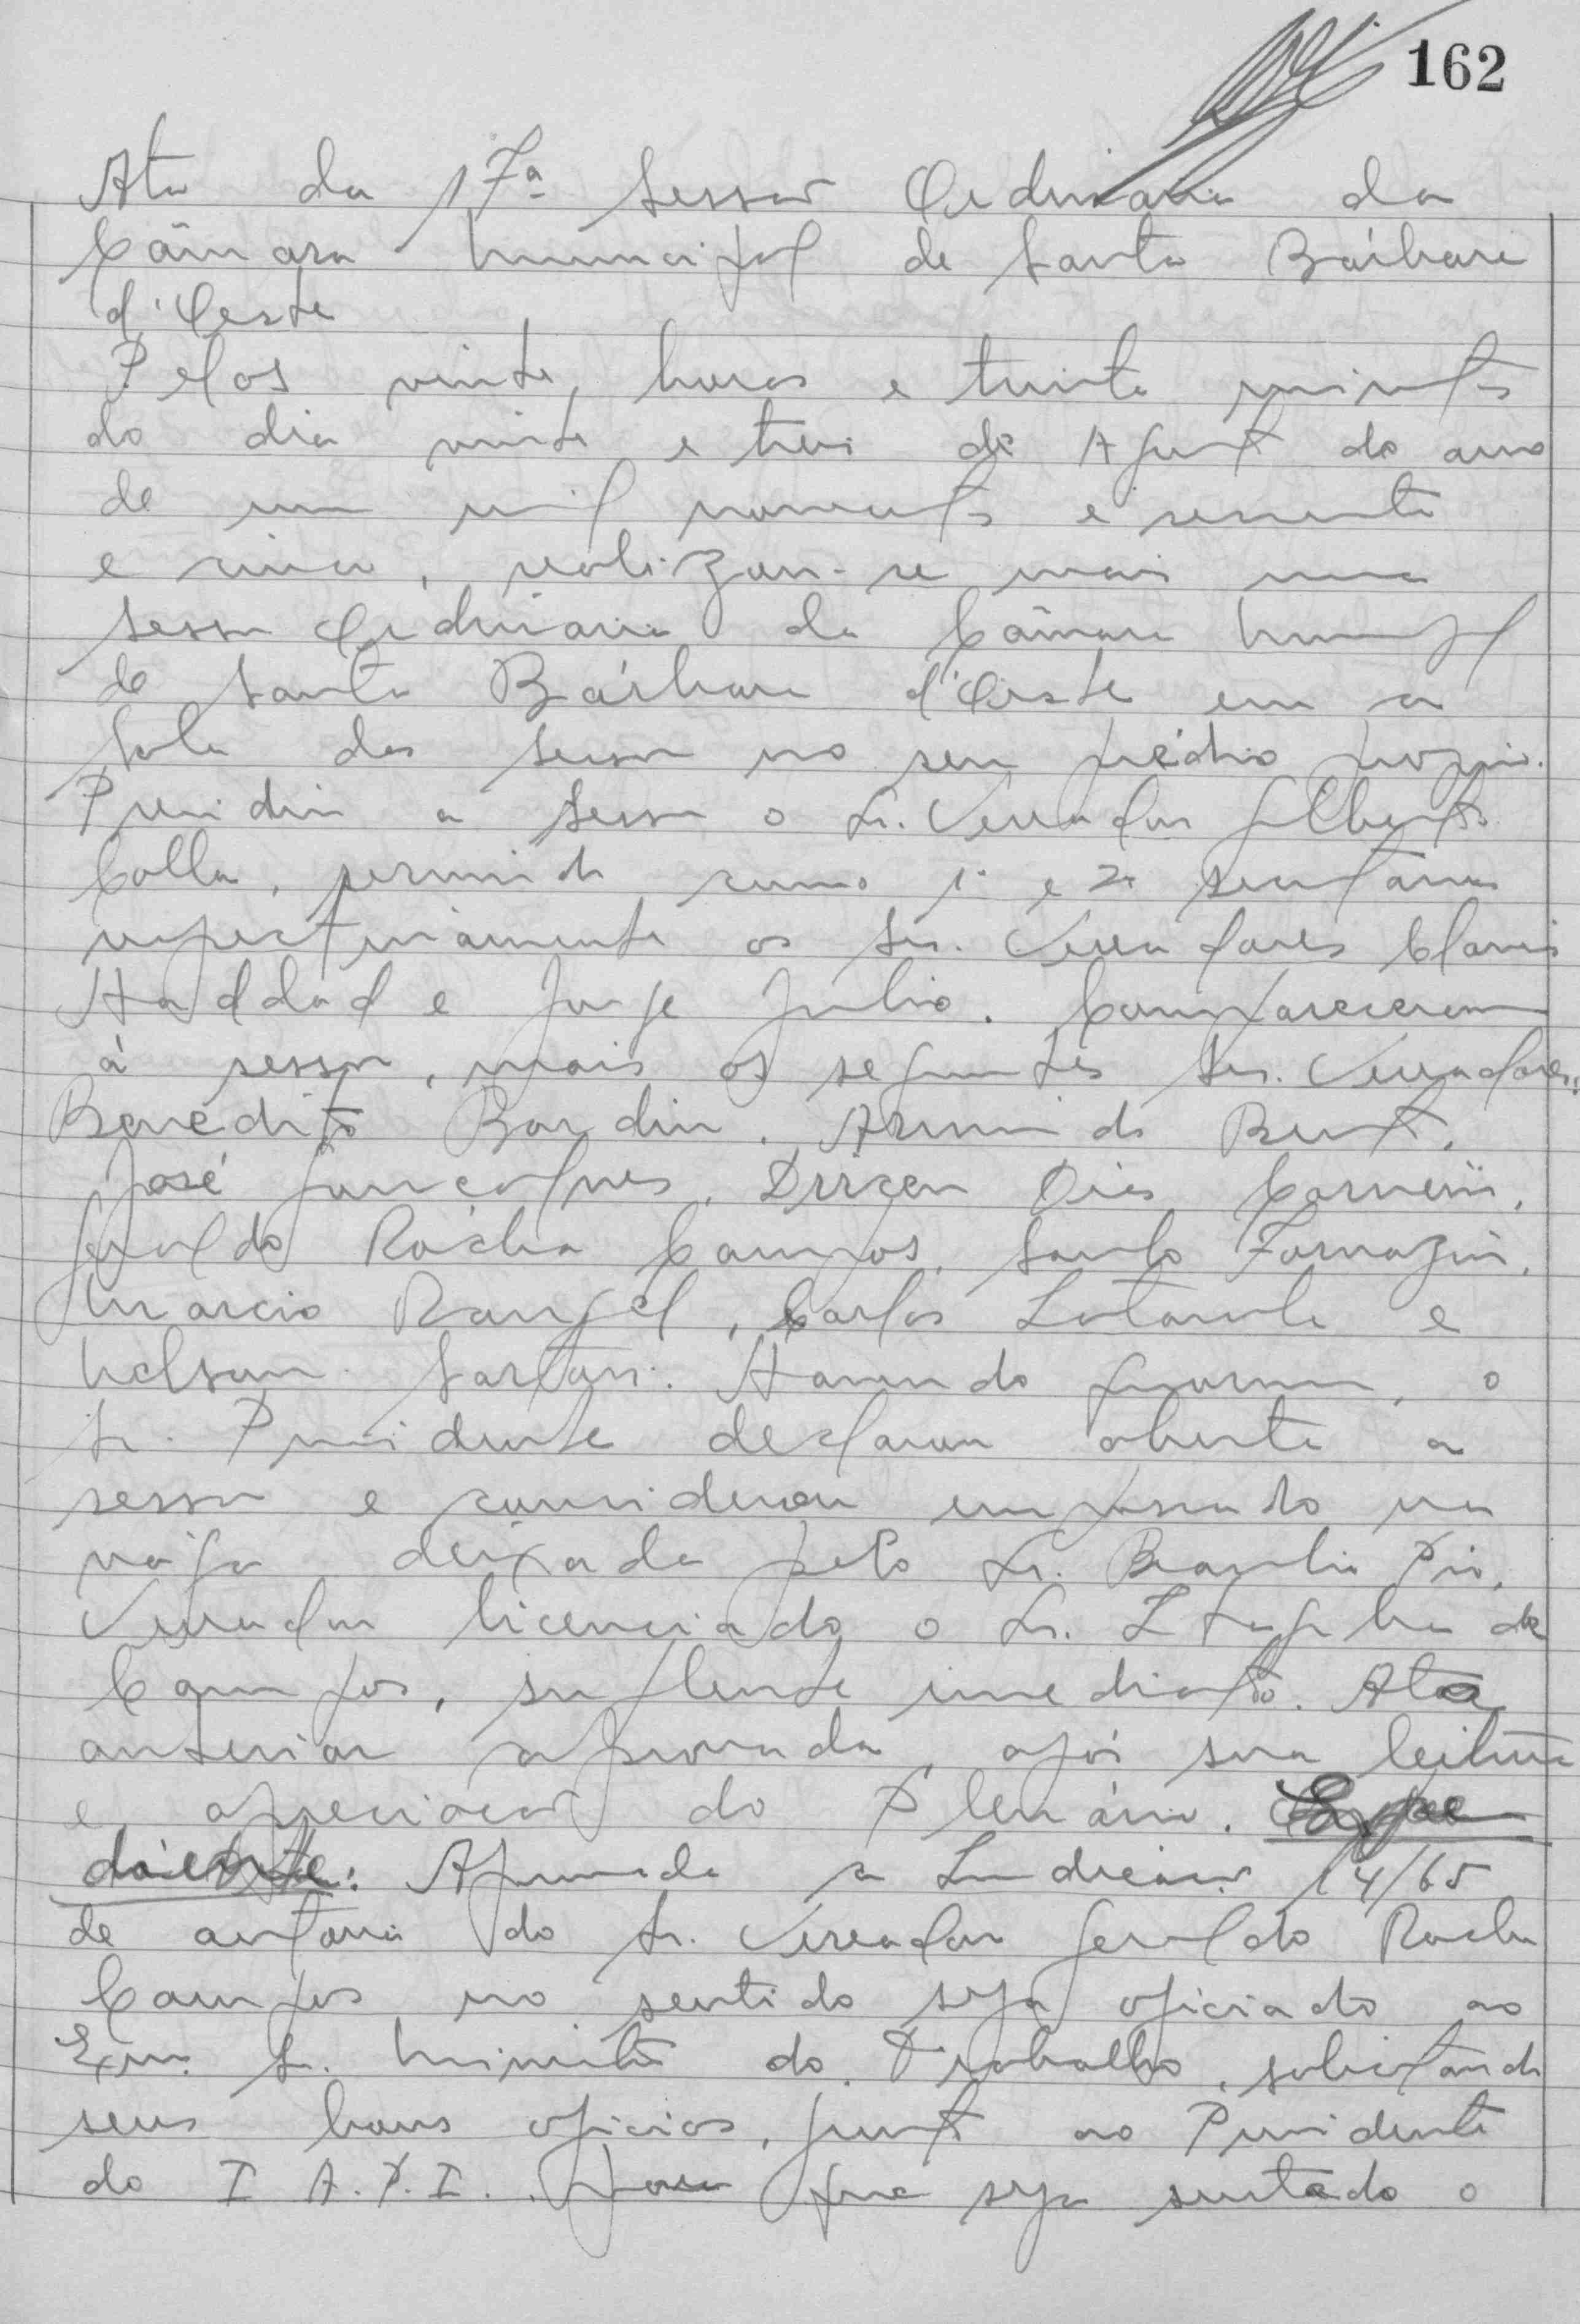 162
Ata da 17ª Sessão Ordinaria da
Câmara Municipal de Santa Bárbara
d'Oeste
Pelas vinte horas e trinta minutos
do dia vinte e três de Agosto do ano
de um mil novecentos e sessenta
e cinco, realizou-se mais uma
sessão Ordinaria da Câmara Municipal
de Santa Bárbara d'Oeste em a
Sala das sessões no seu prédio proprio.
Presidiu a sessão o Sr. Vereador Gilberto
Colla, servindo como 1º e 2º secretarios
respectivamente os Srs. Vereadores
Haddad e Jorge Julio. Compareceram
á sessão, mais os seguintes Srs. Vereadores:
Benedito Armindo
José Gonçalves, Dirceu Dias Carneiro,
Geraldo Rocha Campos, Santo Fornazin,
Marcio Rangel, Carlos e
Nelson Sartori. Havendo quorum, o
Sr. Presidente declarou aberta a
sessão e considerou empossado na
vaga deixada pelo Sr. Braulio Pio,
Vereador licenciado o Sr. de
Campos, suplente imediato. Ata
anterior aprovada, após sua leitura
e apreciação do Plenário. Expe
diente: Aprovada a Indicação 14/65
de autoria do Sr. Vereador Geraldo Rocha
Campos, no sentido seja oficiado ao
Exmo. Sr. Ministro do Trabalho, solicitando
seus bons oficios, junto ao Presidente
do I A.P.I. para que seja sustado o